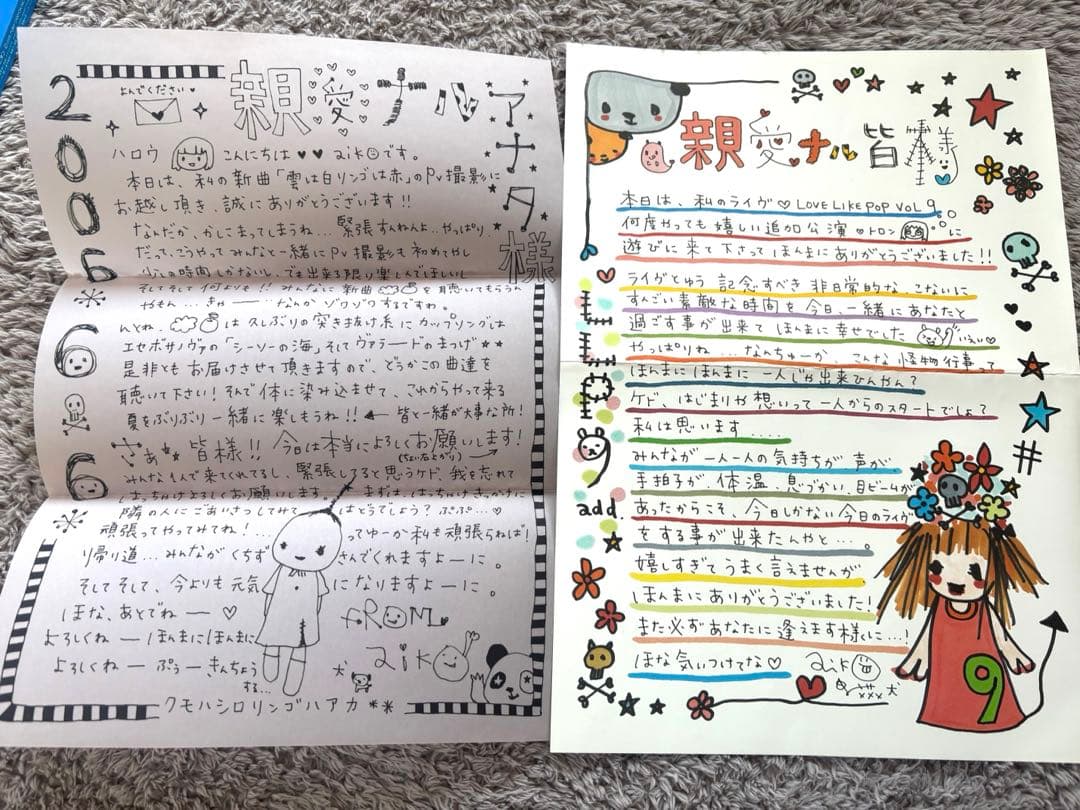 2006 6 6
よんでください
親愛ナルアナタ様
ハロウ こんにちは♥♥ aikoです。
本日は、私の新曲「雲は白リンゴは赤」のPV撮影に
お越し頂き、誠にありがとうございます!!
なんだか、かしこまってしまうね… 緊張すんねんよ…やっぱり
だって、こうやってみんなと一緒にPV撮影も初めてやし
少しの時間しかないし、でも出来る限り楽しんでほしいし
そしてそして何よりも!! みんなに新曲 を聴いてもらうん
やもん… きゃー なんか ゾワゾワするですわ。
んとね、 は久しぶりの突き抜け系にカップリングは
エセボサノヴァの「シーソーの海」そしてヴァラードのまつげ★★
是非ともお届けさせて頂きますので、どうかこの曲達を
聴いて下さい! そんで体に染み込ませて、これからやって来る
夏をぶりぶり一緒に楽しもうね!! ← 皆と一緒が大事な所!
さぁ** 皆様!! 今日は本当によろしくお願いします!
(ちょい右上がり)
みんな1人で来てくれてるし、緊張してると思うケド、我を忘れて
はっちゃけよろしくお願いします… まずは、はっちゃけきっかけに
隣の人にごあいさつしてみてはどうでしょう? ぷぷ…♡
頑張ってやってみてね! ってゆーか私も頑張らねば!
帰り道…みんながくちずさんでくれますよーに。
そしてそして、今よりも元気になりますよーに。
ほな、あとでねー ♡
よろしくねー ほんまにほんまに
よろしくねー ぷぅー きんちょう
する…
FROM
aiko
犬
クモハシロリンゴハアカ **
親愛ナル皆様
本日は、私のライヴ♡LOVE LIKE POP VOL 9
何度やっても嬉しい追加公演 ♥トロン に
遊びに来て下さってほんまにありがとうございました!!
ライヴとゆう 記念すべき 非日常的な、こないに
すんごい素敵な時間を今日、一緒にあなたと
過ごす事が出来て ほんまに幸せでした いぇい♡
やっぱりね…なんちゅーか、こんな怪物行事って
ほんまにほんまに 一人じゃ出来ひんやん?
ケド、はじまりや想いって一人からのスタートでしょ?
私は思います....
みんなが一人一人の気持ちが 声が、
手拍子が、体温、息づかい、目ビームが
あったからこそ、今日しかない今日のライヴ
をする事が出来たんやと…。
嬉しすぎてうまく言えませんが
ほんまにありがとうございました!
また必ずあなたに逢えます様に…!
ほな気いつけてな♡ aiko
犬
9
add.
#
9